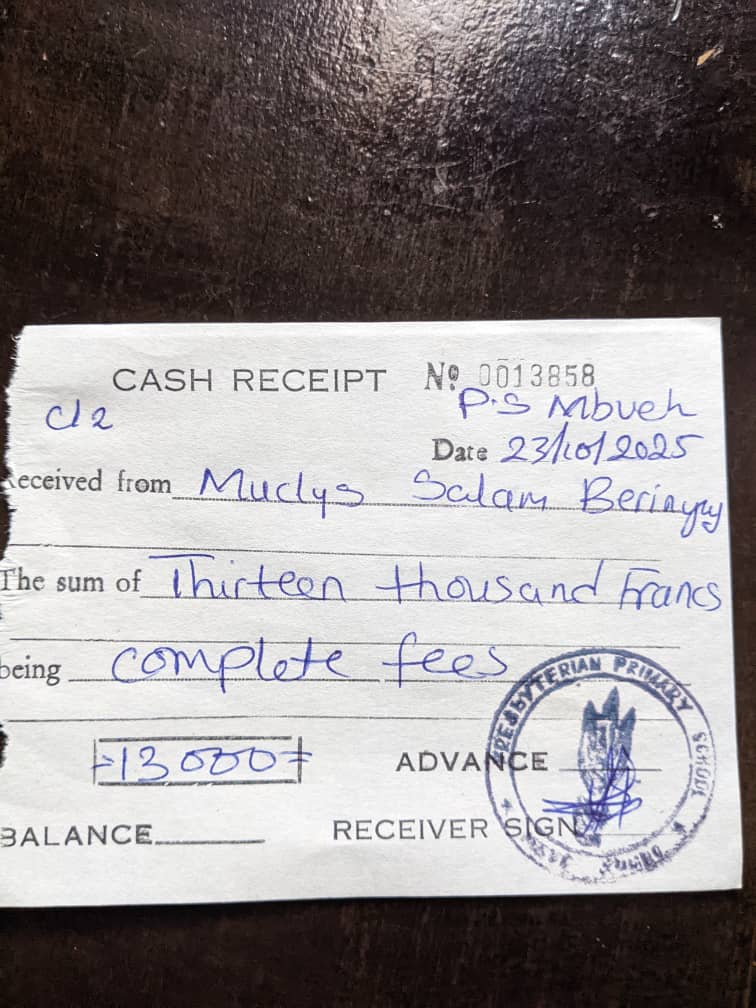 CASH RECEIPT Nº 0013858
P.S Mbueh
Cl 2
Date 23/10/2025
Received from Muclys Salam Berinyuy
The sum of Thirteen thousand Francs
being complete fees
13000
ADVANCE
BALANCE
RECEIVER SIGN
PRESBYTERIAN PRIMARY SCHOOL